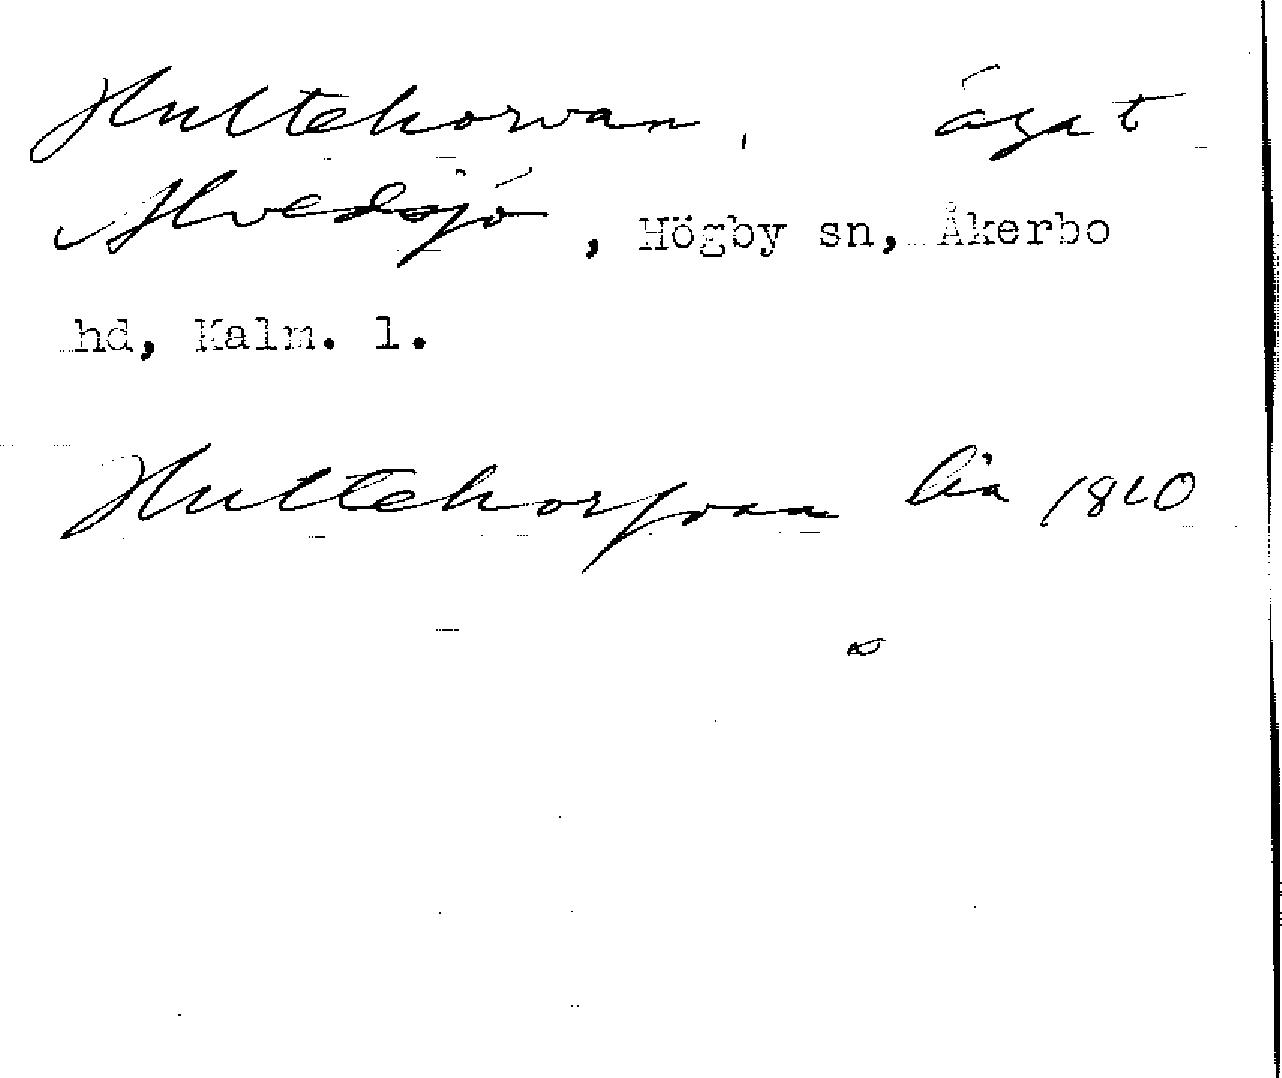 Hultehorvan, ägat
Alvedsjö, Högby sn, Åkerbo
hd, Kalm. l.
Hultehorfvan 1820